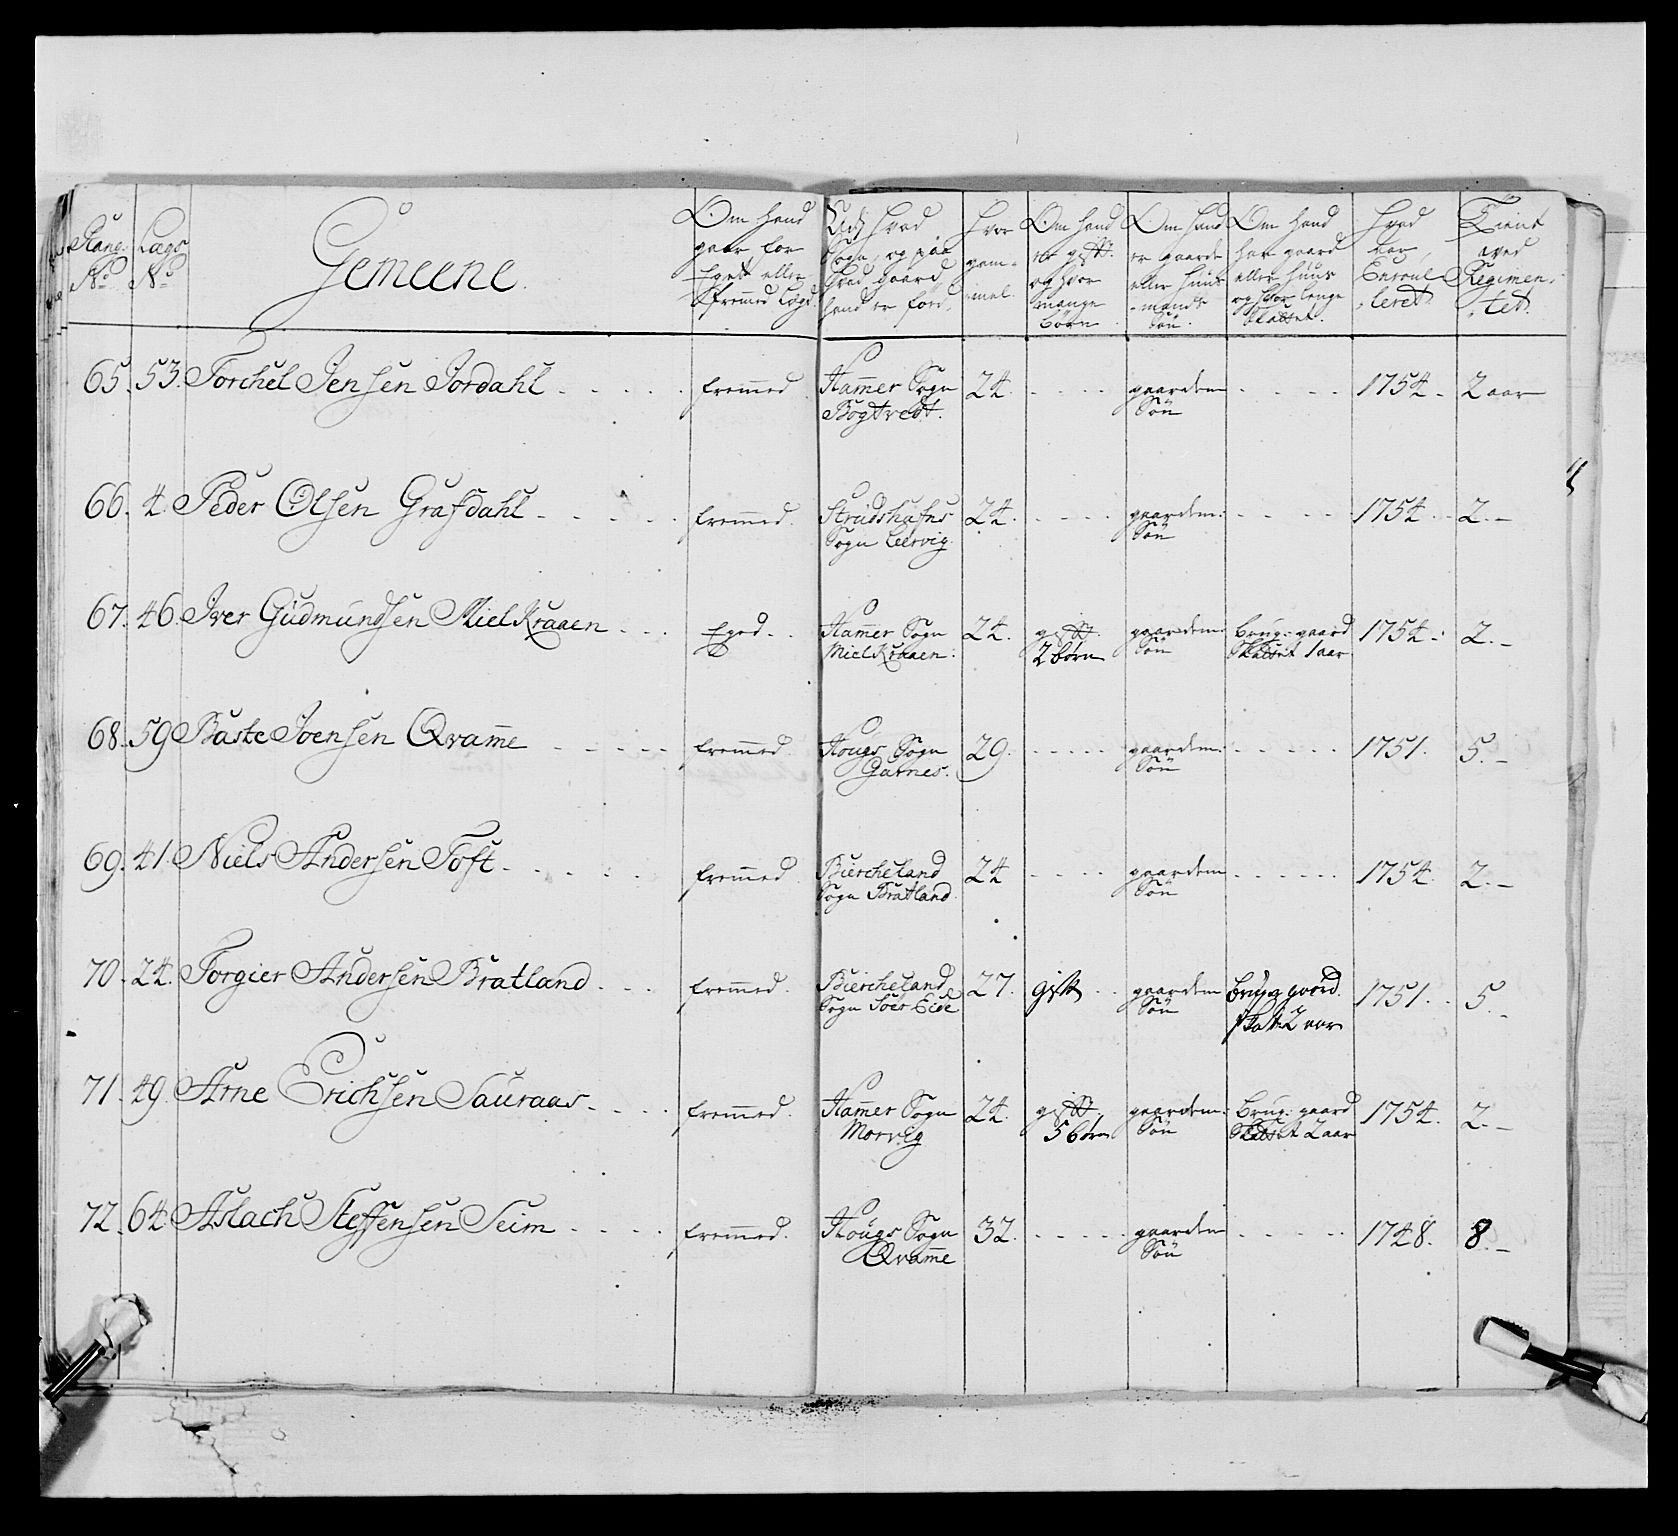 Rang. N.o | Lægs N.o | Gemeene. | Om hand gaar for Eget eller fremmed Lægd. | Udj hvad Sogn, og paa hvad gaard hand er föed. | Hvor gam- mel. | Om hand er gift. og hvor mange börn | Om hand er gaards eller huus- mands Sön. | Om hand har gaard eller huus og hvor lenge Skattet. | Hvad aar Enroul- leret. | Tient ved Regimen- ted.
65. | 53. | Torchel Jensen Jordahl | fremmed | Hamer Sogn Bogtvedt. | 24. | | gaardem Sön | | 1754. | 2 aar
66. | 4. | Peder Olsen Grafdahl | fremmed. | Strudshafns Sogn Leervig. | 24. | | gaardem: Sön | | 1754. | 2.
67. | 46. | Iver Gudmundsen Mielkraaen | Eged | Hamer Sogn Mielkraaen: | 24. | gift. 2 börn | gaardem: Sön | Brug: gaard Skattet 1 aar | 1754. | 2.
68. | 59 | Baste Joensen Qvame | fremmed. | Hougs Sogn Garnes. | 29. | | gaardem: Sön | | 1751. | 5.
69. | 41. | Niels Andersen Toft | fremmed | Biercheland Sogn Bratland. | 24 | | gaardem Sön | | 1754. | 2.
70. | 24. | Torgier Andersen Bratland | fremmed. | Biercheland Sogn Söer Eide | 27. | gift | gaardem Sön | brug gaard. skat 2 aar | 1751. | 5.
71. | 49. | Arne Erichsen Sauraas | fremmed. | Hamer Sogn Morvig | 24. | gift. 5 börn | gaardem: Sön | Brug: gaard Skattet 2 aar | 1754. | 2.
72. | 64 | Aslach Steffensen Seim | fremmed. | Hougs Sogn Qvame | 32. | | gaardem Sön | | 1748. | 8.